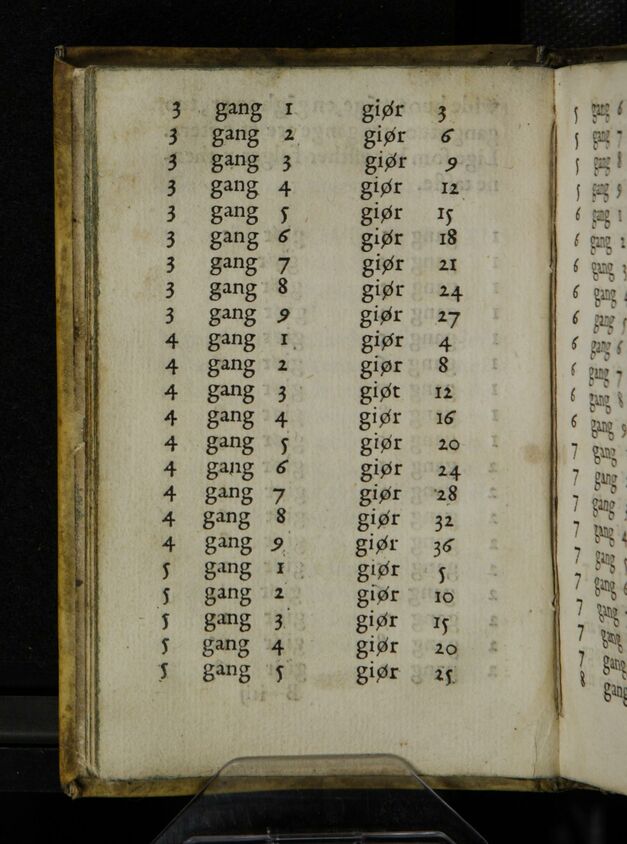 3 gang 1 giør 3
3 gang 2 giør 6
3 gang 3 giør 9
3 gang 4 giør 12
3 gang 5 giør 15
3 gang 6 giør 18
3 gang 7 giør 21
3 gang 8 giør 24
3 gang 9 giør 27
4 gang 1 giør 4
4 gang 2 giør 8
4 gang 3 giøt 12
4 gang 4 giør 16
4 gang 5 giør 20
4 gang 6 giør 24
4 gang 7 giør 28
4 gang 8 giør 32
4 gang 9 giør 36
5 gang 1 giør 5
5 gang 2 giør 10
5 gang 3 giør 15
5 gang 4 giør 20
5 gang 5 giør 25
5 gang 6
5 gang 7
5 gang 8
5 gang 9
6 gang 1
6 gang 2
6 gang 3
6 gang 4
6 gang 5
6 gang 6
6 gang 7
6 gang 8
6 gang 9
7 gang
7 gang
7 gang
7 gang 4
7 gang 5
7 gang 6
7 gang
7 gang
7 gang
8 gang